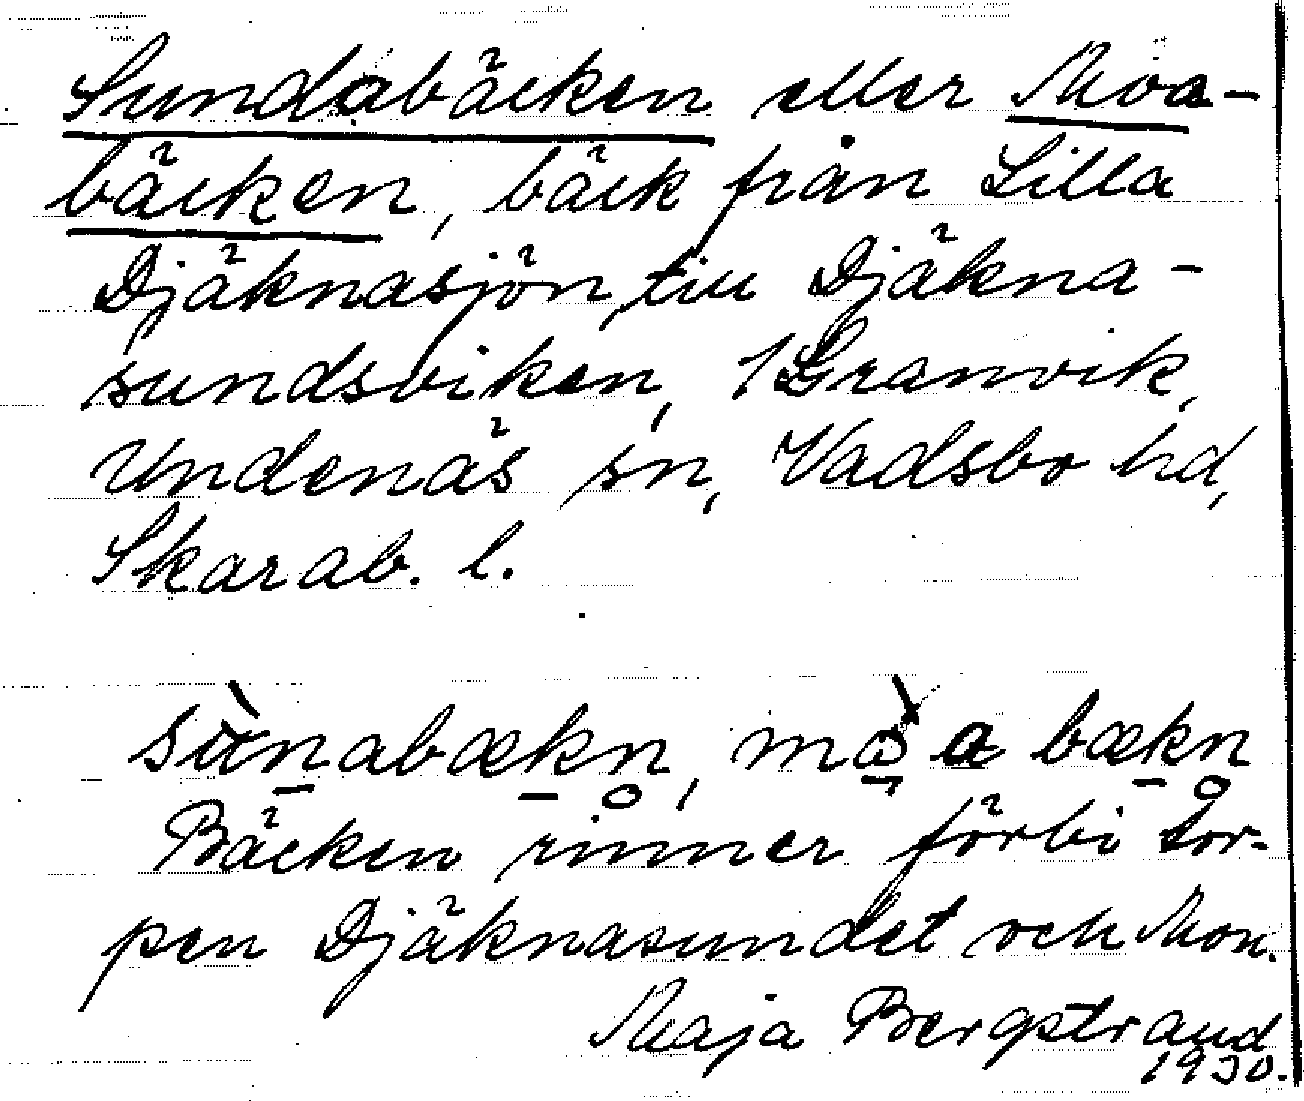 Sundabäcken eller Moa-
bäcken, bäck från Lilla
Djäknasjön, till Djäkna-
sundsviken, 1 Granvik,
Undenäs sn, Vadsbo hd,
Skarab. l.
sùn̲abæk̲n̥, mɷ̲̀a bæk̲n̥
Bäcken rinner förbi tor-
pen Djäknasundet och Mon.
Maja Bergstrand
1930.